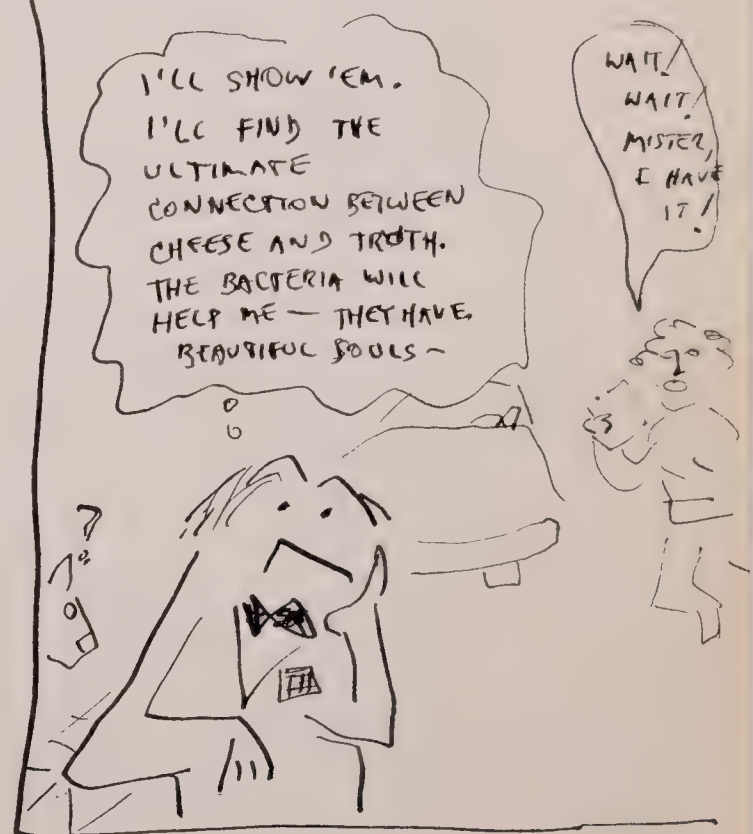 I'LL SHOW 'EM.
I'LL FIND THE
ULTIMATE
CONNECTION BETWEEN
CHEESE AND TRUTH.
THE BACTERIA WILL
HELP ME — THEY HAVE
BEAUTIFUL SOULS —
WAIT!
WAIT!
MISTER,
I HAVE
IT!
?